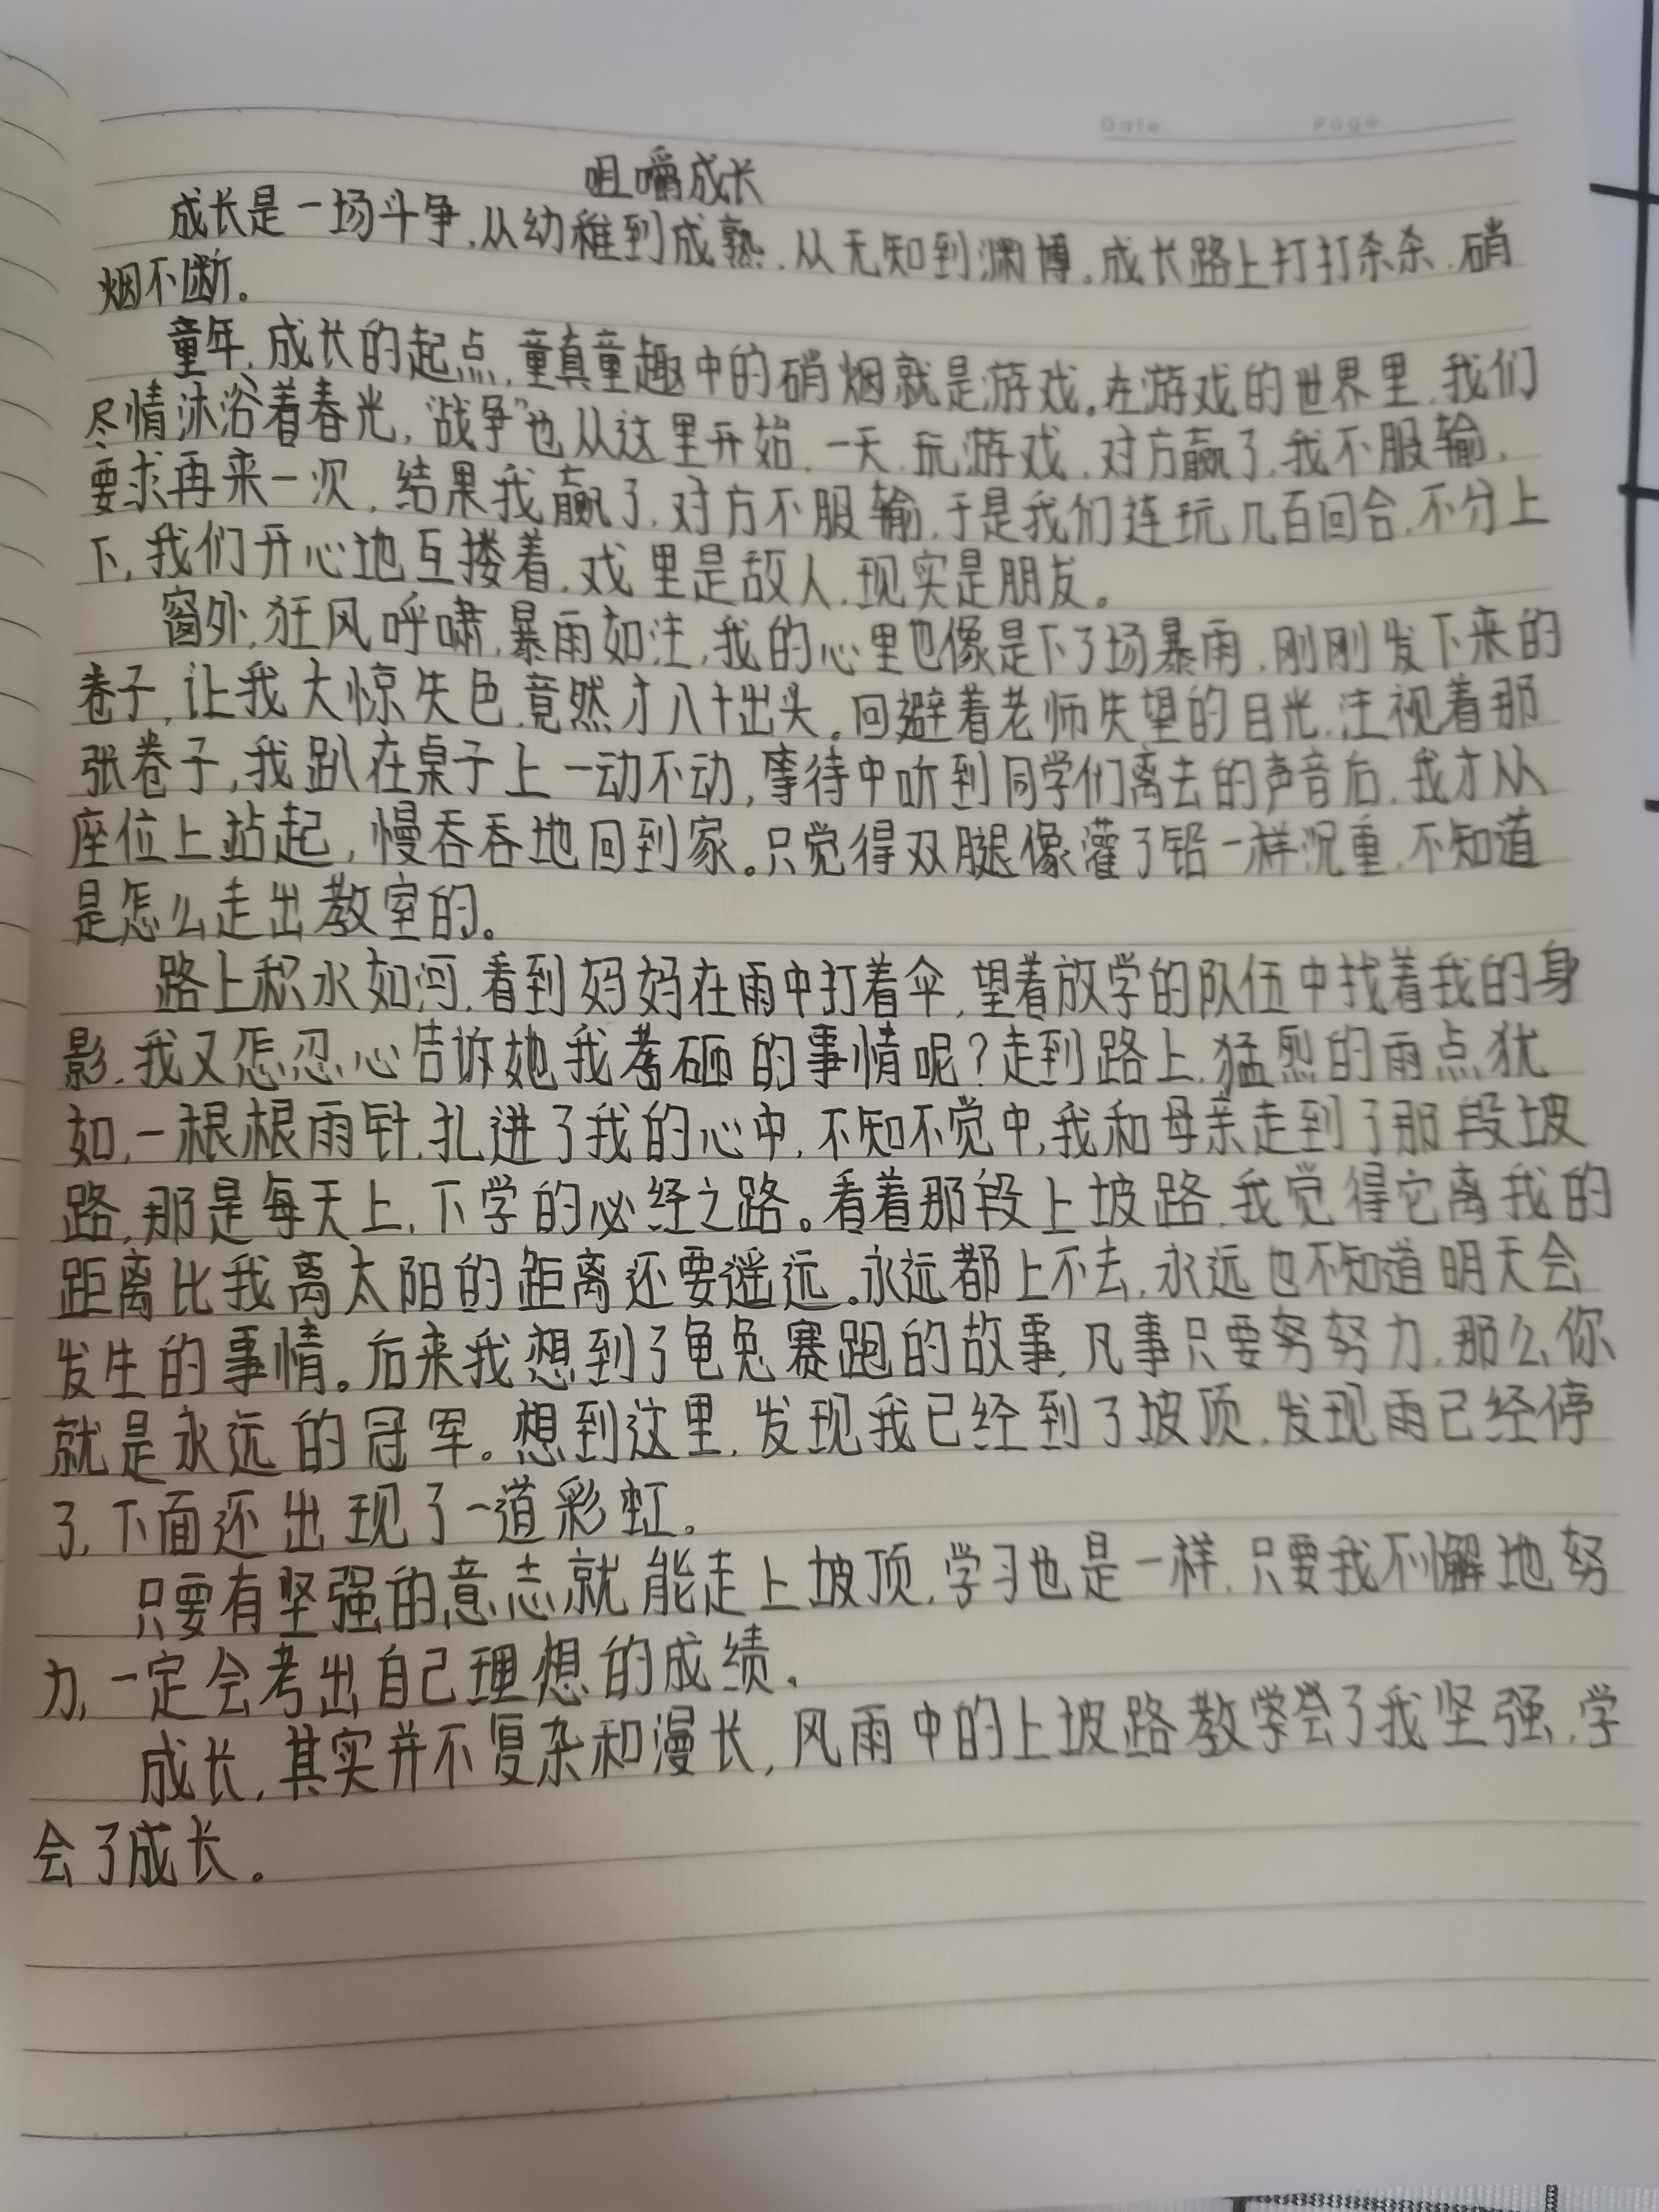 Date Page
咀嚼成长
成长是一场斗争,从幼稚到成熟,从无知到渊博,成长路上打打杀杀,硝
烟不断。
童年,成长的起点,童真童趣中的硝烟就是游戏。在游戏的世界里,我们
尽情沐浴着春光,“战争”也从这里开始,一天,玩游戏,对方赢了,我不服输,
要求再来一次,结果我赢了,对方不服输,于是我们连玩几百回合,不分上
下,我们开心地互搂着,戏里是敌人,现实是朋友。
窗外,狂风呼啸,暴雨如注,我的心里也像是下了场暴雨,刚刚发下来的
卷子,让我大惊失色,竟然才八十出头。回避着老师失望的目光,注视着那
张卷子,我趴在桌子上一动不动,等待中听到同学们离去的声音后,我才从
座位上站起,慢吞吞地回到家。只觉得双腿像灌了铅一样沉重,不知道
是怎么走出教室的。
路上积水如河,看到妈妈在雨中打着伞,望着放学的队伍中找着我的身
影,我又怎忍心告诉她我考砸的事情呢?走到路上,猛烈的雨点犹
如,一根根雨针,扎进了我的心中,不知不觉中,我和母亲走到了那段坡
路,那是每天上,下学的必经之路。看着那段上坡路,我觉得它离我的
距离比我离太阳的距离还要遥远。永远都上不去,永远也不知道明天会
发生的事情。后来我想到了龟兔赛跑的故事,凡事只要努努力,那么你
就是永远的冠军。想到这里,发现我已经到了坡顶,发现雨已经停
了,下面还出现了一道彩虹。
只要有坚强的意志就能走上坡顶,学习也是一样,只要我不懈地努
力,一定会考出自己理想的成绩。
成长,其实并不复杂和漫长,风雨中的上坡路教学会了我坚强,学
会了成长。